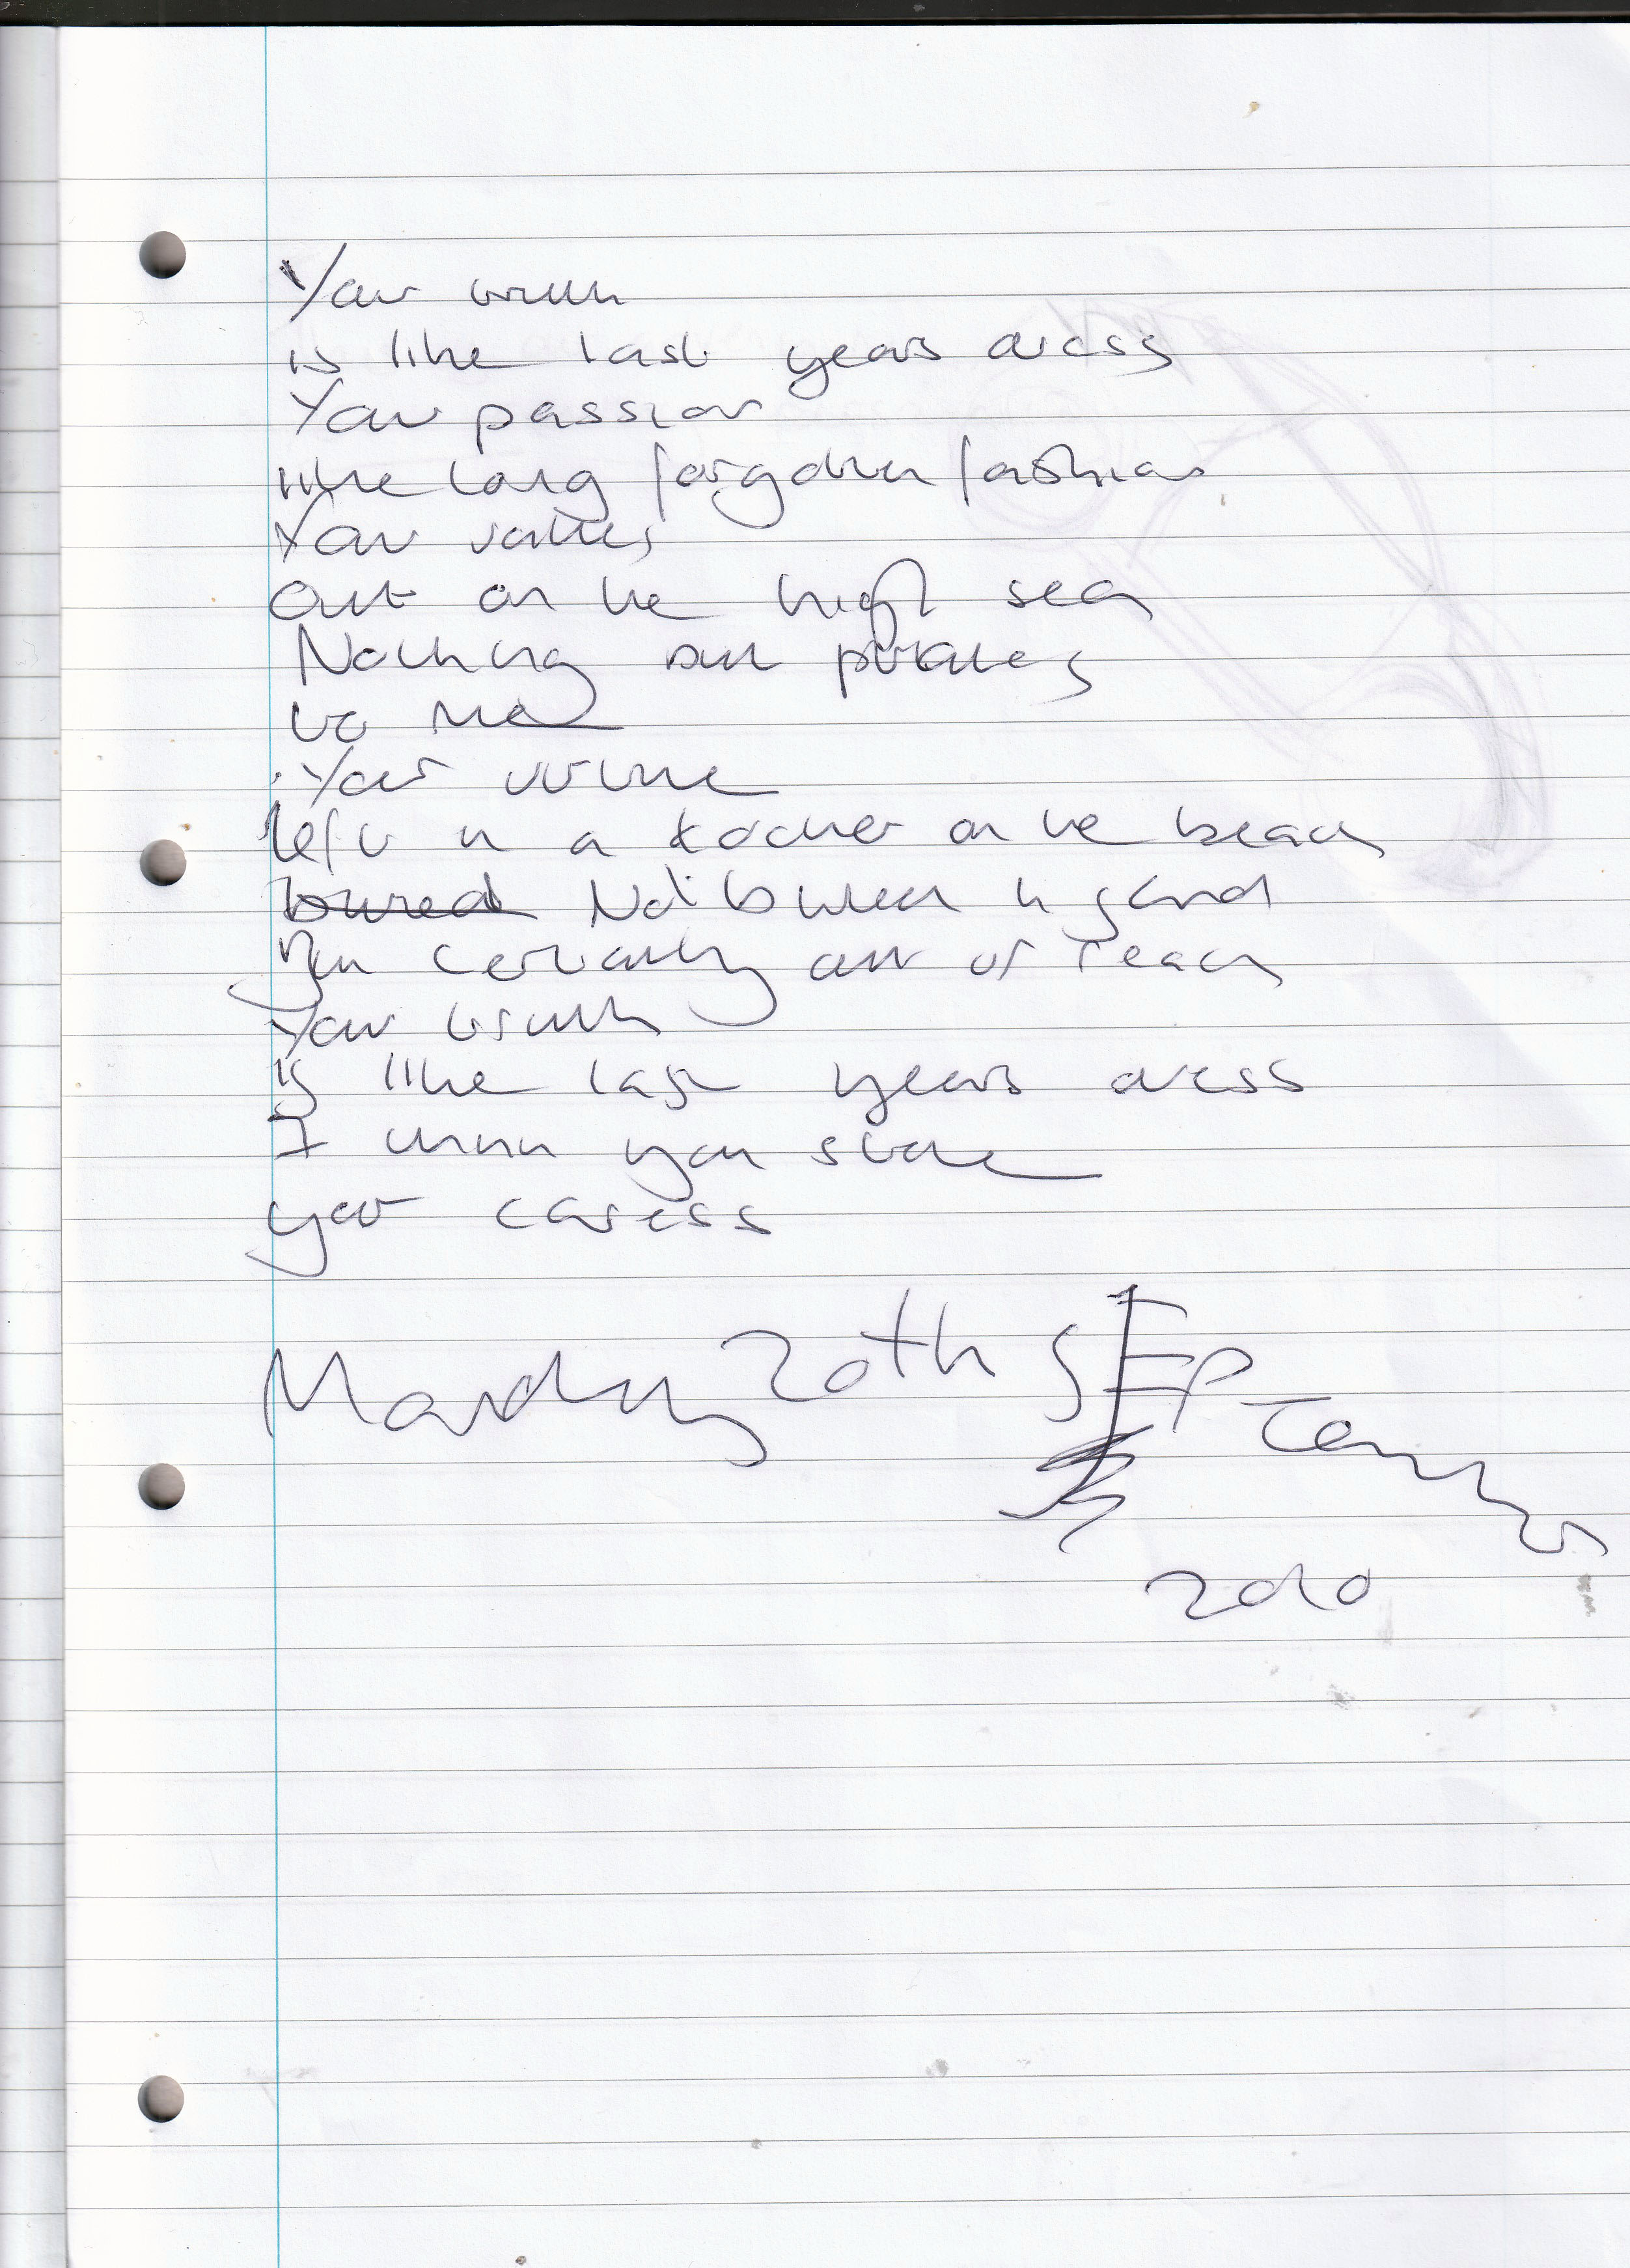 Your truth
is like last years dress
Your passion
like long forgotten fashion
Your values
Out on the high sea
Nothing but pirates
to me
Your virtue
left in a locker on the beach
buried Not buried in sand
But certainly out of reach
Your truth
is like last years dress
I think you stole
your caress
Monday 20th SEPTember
2010